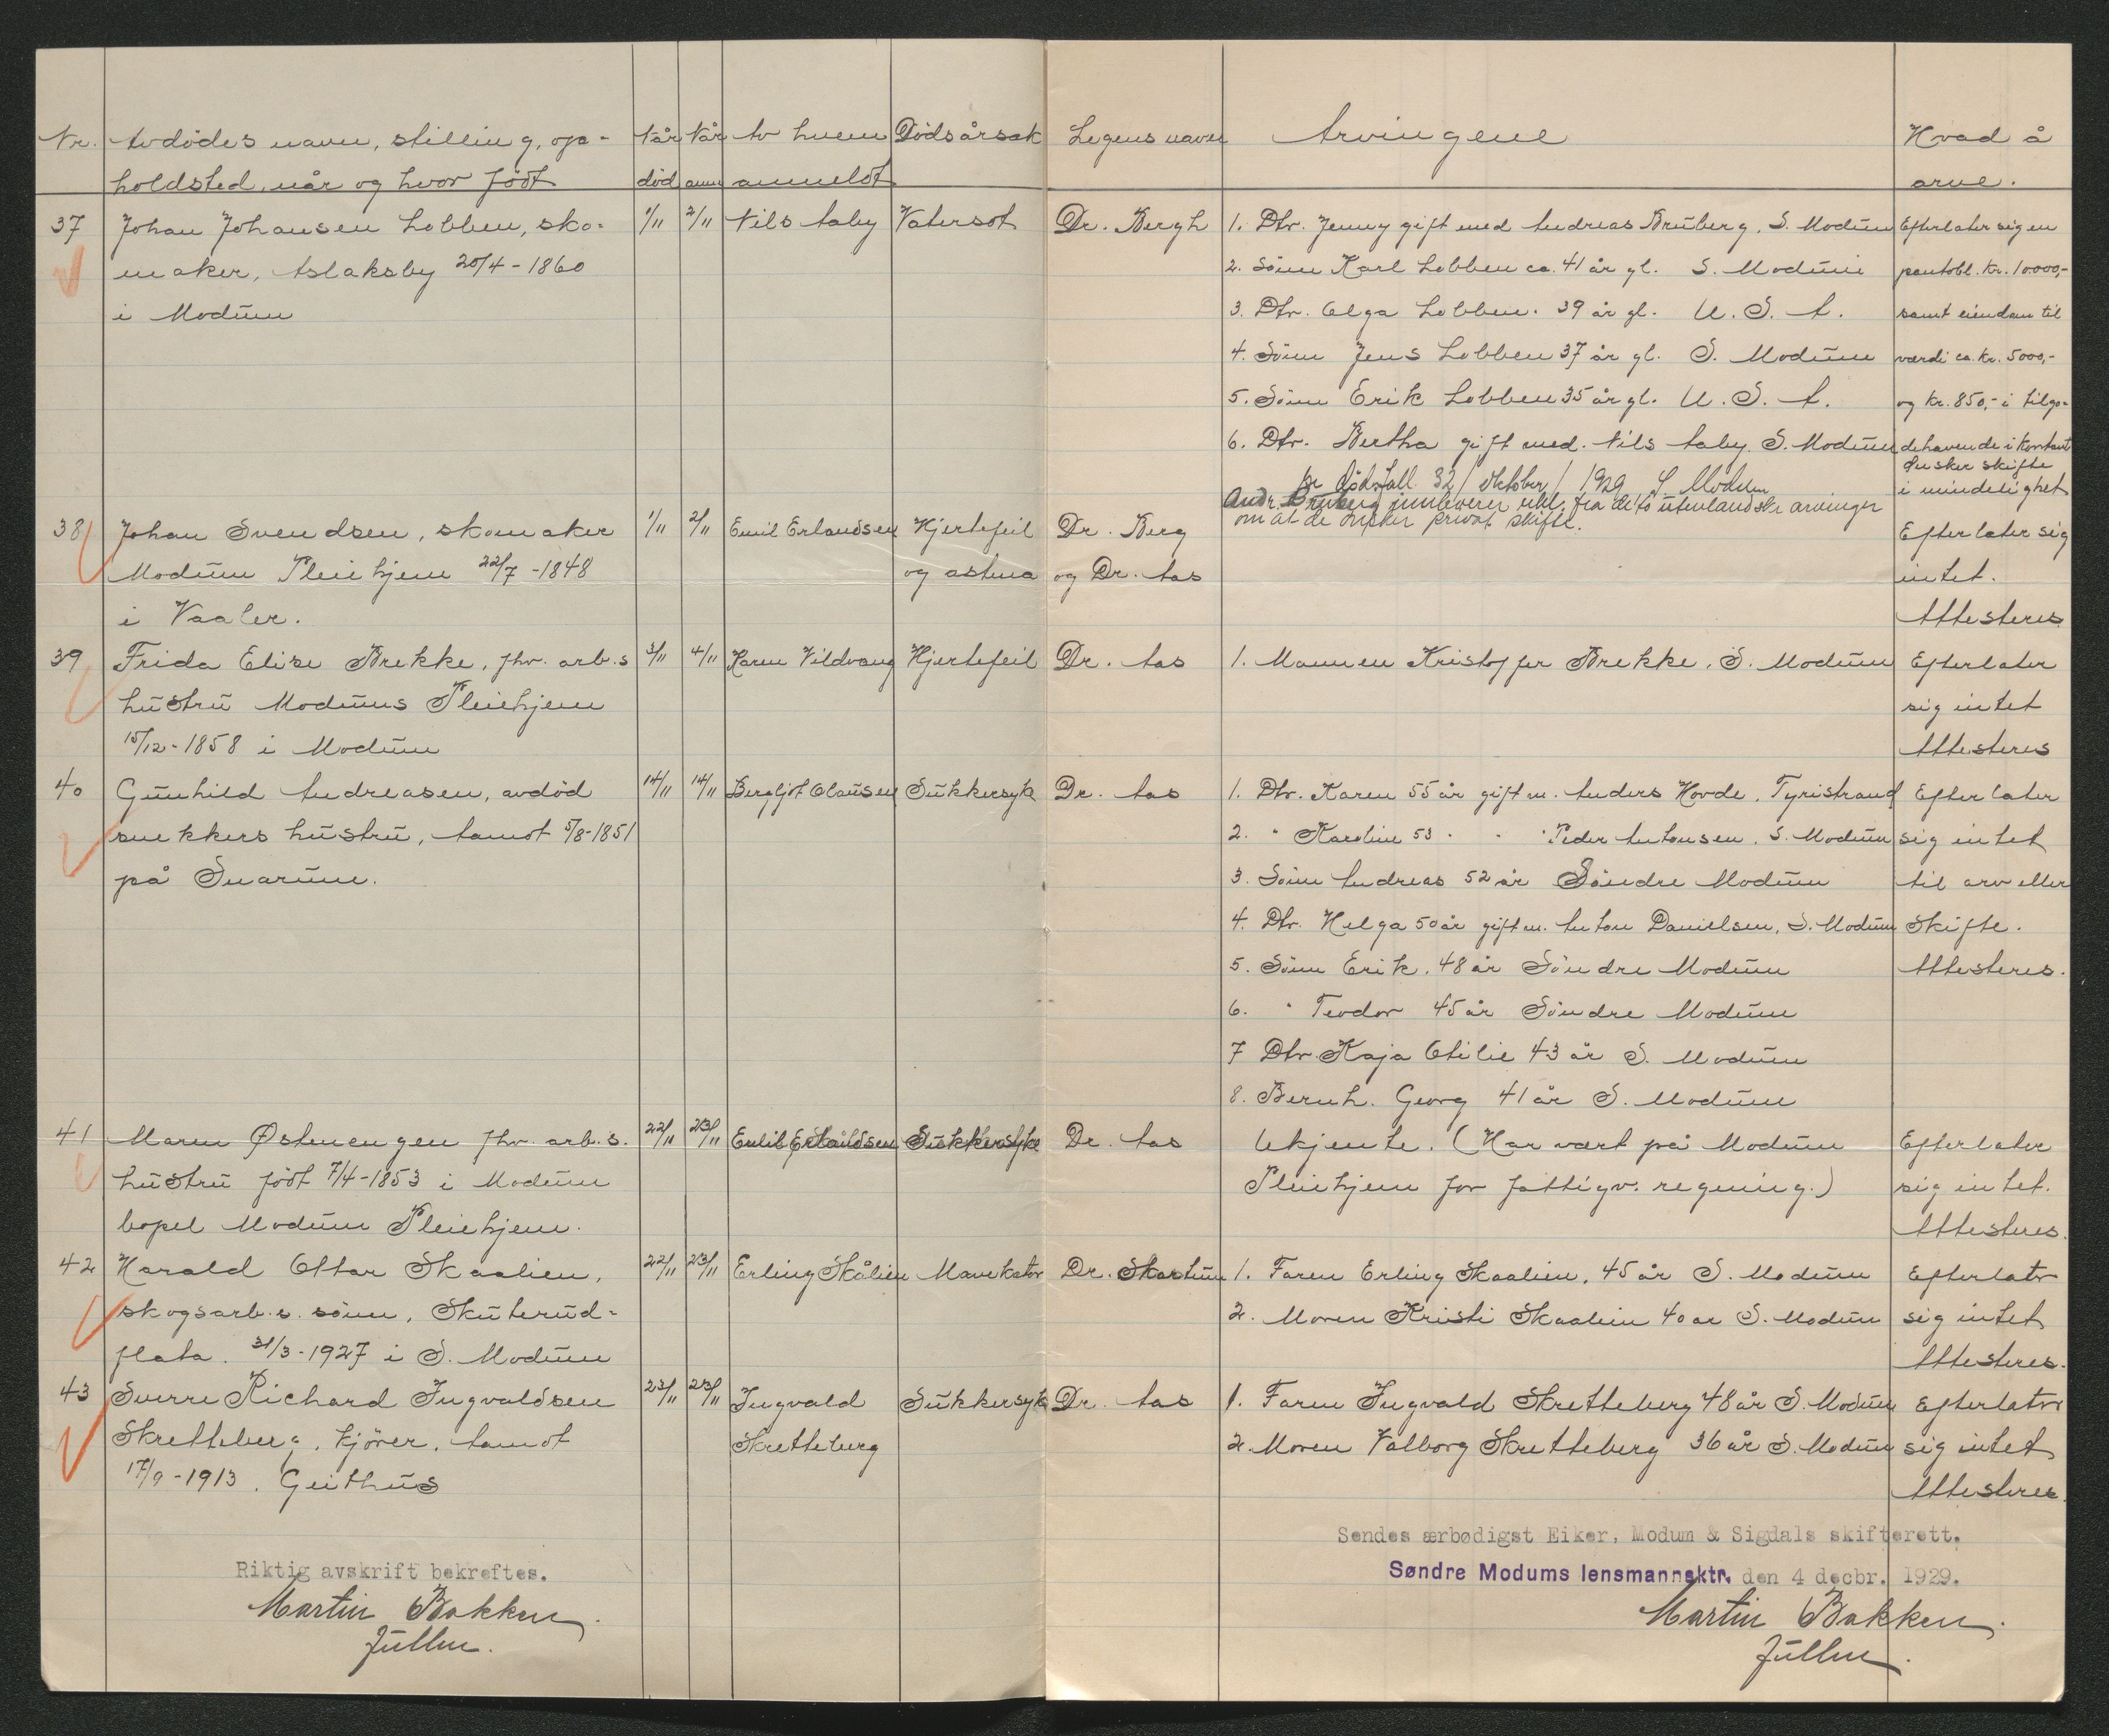 Nr. Avdødes navn, stilling, op- Når Når Av hvem Dødsårsak Legens navn Arvingene Hvad å
holdsted, når og hvor født død anm anmeldt arve.
37 Johan Johansen Lobben, sko- 1/11 2/11 Nils Aaby Vatersot Dr. Bergh 1. Dtr. Jenny gift med Andreas Bruberg, S. Modum Efterlater sig en
maker, Aslaksby 20/4-1860 2. Sønn Karl Lobben ca. 41 år gl. S. Modum pantobl. kr. 10000,-
i Modum 3. Dtr. Olga Lobben. 39 år gl. U. S. A. samt eiendom til
4. Sønn Jens Lobben 37 år gl. S. Modum værdi ca. kr. 5000,-
5. Sønn Erik Lobben 35 år gl. U. S. A. og kr. 850,- i tilgo-
6. Dtr. Bertha gift med Nils Aaby S. Modum dehavende i kontant
Ønsker skifte
i mindelighet
se dødsfall 32/ oktober/ 1929 S Modum
Andr. Bruberg innleverer erkl. fra de to utenlandske arvinger
om at de ønsker privat skifte.
38 Johan Svendsen, skomaker 1/11 2/11 Emil Erlandsen Hjertefeil Dr. Berg Efterlater sig
Modum Pleiehjem 22/7-1848 og astma og Dr. Aas intet.
i Vaaler. Attesteres
39 Frida Elise Brekke, fhv. arb.s 3/11 4/11 Karen Vildvang Hjertefeil Dr. Aas 1. Mannen Kristoffer Brekke, S. Modum Efterlater
hustru Modums Pleiehjem sig intet
15/12-1858 i Modum Attesteres
40 Gunhild Andreasen, avdød 14/11 14/11 Bergljot Olausen Sukkersyk Dr. Aas 1. Dtr. Karen 55 år gift m. Anders Hovde, Tyristrand Efterlater
snekkers hustru, Aamot 5/8-1851 2. " Karoline 53 " " " Peder Antonsen. S. Modum sig intet
på Snarum. 3. Sønn Andreas 52 år Søndre Modum til arv eller
4. Dtr. Helga 50 år gift m. Anton Danielsen, S. Modum Skifte.
5. Sønn Erik. 48 år Søndre Modum Attesteres.
6. " Teodor 45 år Søndre Modum
7 Dtr. Kaja Otilie 43 år S. Modum
8. Bernh. Georg 41 år S. Modum
41 Maren Østmoengen fhv. arb.s. 22/11 23/11 Emil Erlandsen Sukkersyke Dr. Aas Ukjente. (Har vært på Modum Efterlater
hustru født 7/4-1853 i Modum Pleiehjem for fattigv. regning.) sig intet.
bopel Modum Pleiehjem. Attesteres.
42 Harald Ottar Skaalien, 22/11 23/11 Erling Skålien Mavekatar Dr. Skartum 1. Faren Erling Skaalien, 45 år S. Modum Efterlater
skogsarb.s. sønn, Skuterud- 2. Moren Kristi Skaalien 40 år S. Modum sig intet
flata. 31/3-1927 i S. Modum Attesteres.
43 Sverre Richard Ingvaldsen 23/11 23/11 Ingvald Sukkersyk Dr. Aas 1. Faren Ingvald Skretteberg 48 år S. Modum Efterlater
Skretteberg, kjører, Aamot Skretteberg 2. Moren Valborg Skretteberg 36 år S. Modum sig intet
17/9-1913. Geithus Attesteres.
Sendes ærbødigst Eiker, Modum & Sigdals skifterett.
Riktig avskrift bekreftes. Søndre Modums lensmannsktr. den 4 decbr. 1929.
Martin Bakken. Martin Bakken.
fullm. fullm.